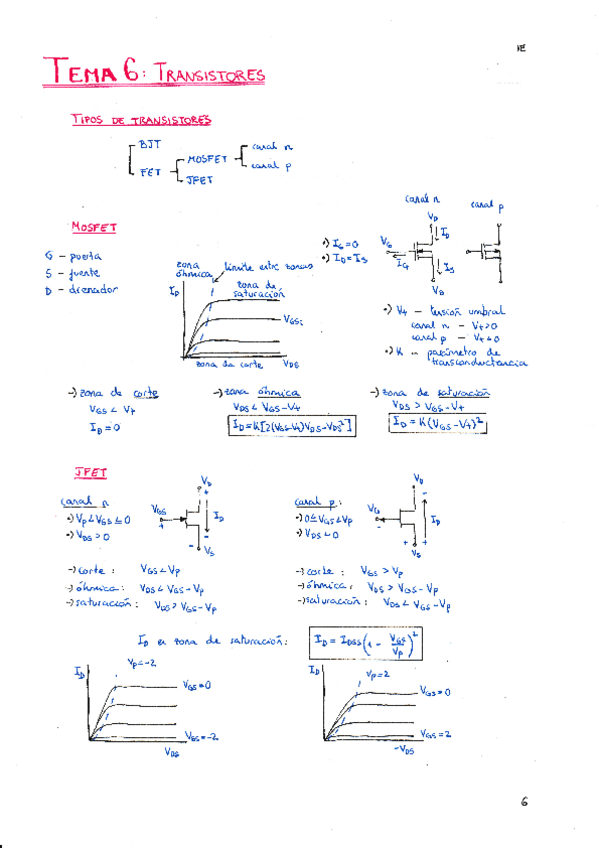 1E
TEMA 6: TRANSISTORES
TIPOS DE TRANSISTORES
BJT
FET
MOSFET
JFET
canal n
canal p
MOSFET
G - puerta
S - fuente
D - drenador
zona óhmica
límite entre zonas
zona de saturación
I_D
V_GS
zona de corte
V_DS
•) I_G=0
•) I_D=I_S
canal n
canal p
V_D
I_D
V_G
I_G
I_S
•) V_t - tensión umbral
canal n - V_t>0
canal p - V_t<0
•) K - parámetro de transconductancia
→ zona de corte
V_GS < V_t
I_D = 0
→ zona óhmica
V_DS < V_GS-V_t
I_D=K[2(V_GS-V_t)V_DS-V_DS²]
→ zona de saturación
V_DS > V_GS-V_t
I_D = K(V_GS-V_t)²
JFET
canal n
•) V_P<V_GS≤0
•) V_DS>0
V_D
+
I_D
+
-
-
V_S
canal p:
•) 0≤V_GS<V_P
•) V_DS<0
V_G
V_D
-
I_D
-
+
+
V_S
→ corte: V_GS<V_P
→ óhmica: V_DS<V_GS-V_P
→ saturación: V_DS>V_GS-V_P
→ corte: V_GS>V_P
→ óhmica: V_DS>V_GS-V_P
→ saturación: V_DS<V_GS-V_P
I_D en zona de saturación:
I_D = I_DSS(1 - V_GS/V_P)²
I_D
V_P=-2
V_GS=0
V_GS=-2
V_DS
I_D
V_P=2
V_GS=0
V_GS=2
-V_DS
6